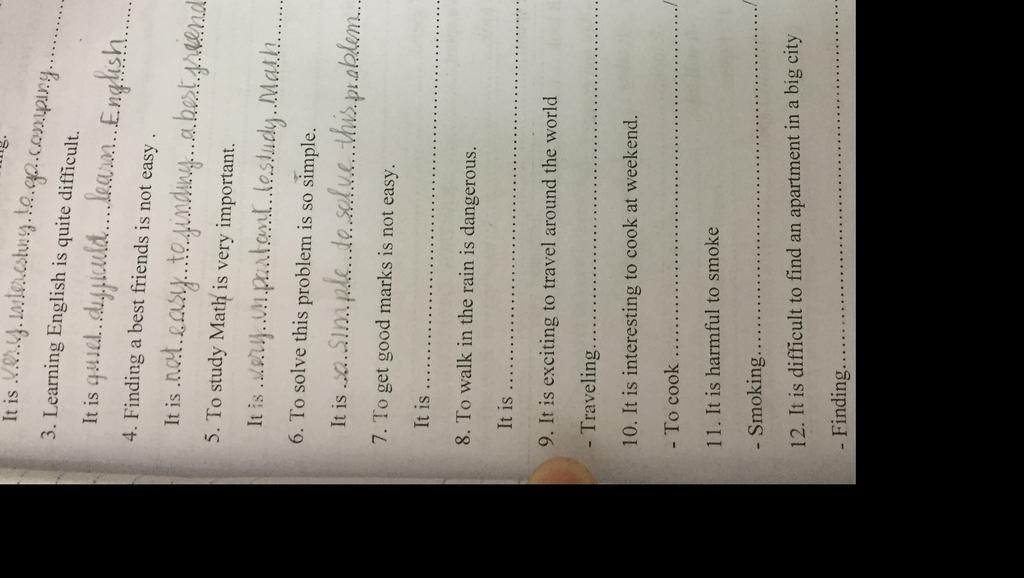 It is very interesting to go camping
3. Learning English is quite difficult.
It is quial difficuld learn English
4. Finding a best friends is not easy .
It is not easy to finding a best friend
5. To study Math is very important.
It is very important to study Math
6. To solve this problem is so simple.
It is so simple to solve this problem
7. To get good marks is not easy.
It is
8. To walk in the rain is dangerous.
It is
9. It is exciting to travel around the world
- Traveling
10. It is interesting to cook at weekend.
- To cook
11. It is harmful to smoke
- Smoking
12. It is difficult to find an apartment in a big city
- Finding